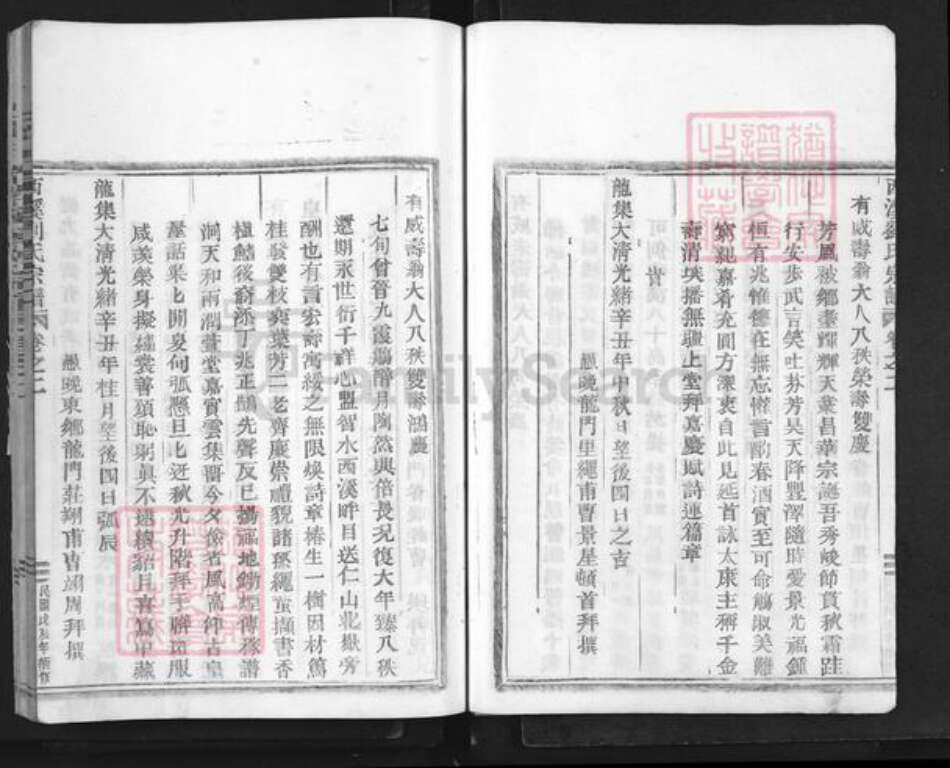 有威壽翁大人八秩榮壽雙慶
芳風被鄉耋輝輝天葉昌華宗誕吾秀峻節貫秋霜跬
行安步武言笑吐芬芳昊天降豐澤隨時愛景光福鍾
恒有兆惟德在無忘惟酋酌春酒實至可命觴淑美難
窮親嘉肴充圓方深衷自此見延首詠太康主稱千金
壽清埃播無疆上堂拜嘉慶賦詩連篇章
龍集大清光緒辛丑年中秋日望後四日之吉
愚晚龍門里繩甫曹景星頓首拜撰
有威壽翁大人八秩雙壽鴻慶
七旬曾晉九霞觴醉月陶然興倍長況復大年臻八秩
還期永世衍千祥心盟智水西溪畔目送仁山北嶽旁
酬也有言宏壽寓綏之無限煥詩章椿生一樹因材篤
桂發雙枝奕葉芳二老齊慶崇禮貌諸孫繩蟄擷書香
植鱔後裔添丁兆正韻先聲反已揚福地
洞天和雨潤萱堂嘉實雲集晉今夕儉者風高仰古皇
羣話果七開及何弧懸旦七迓秋光升階拜手聯斑服
咸羨榮身擬繡裳善頌恥躬真不
龍集大清光緒辛丑年桂月望後四日弧辰
愚晚東鄉龍門莊翔甫曹翊周拜撰
西溪劉氏宗譜 卷之二
民國戊辰年